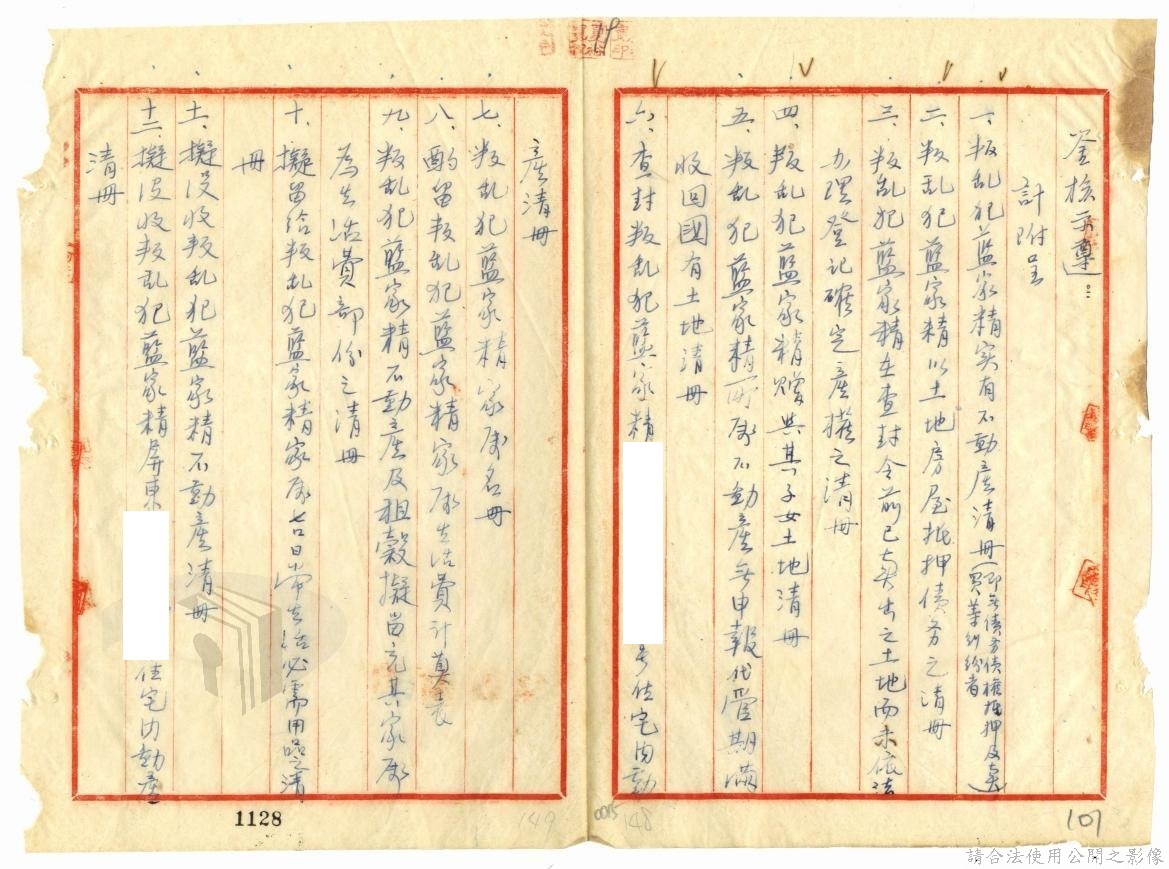 鉴核示遵…
計附呈
一、叛乱犯藍家精实有不動產清冊(即無債务債權抵押及
買華糾紛者
二、叛乱犯藍家精以土地房屋抵押債务之清冊
三、叛亂犯藍家精在查封令前已賣出之土地而未依法
办理登记確定產權之清冊
四、叛乱犯藍家精赠与其子女土地清冊
五、叛乱犯藍家精所屬不動產無申報代管期满
收回國有土地清冊
六、查封叛乱犯藍家精
号住宅内動
產清冊
七、叛乱犯藍家精家屬名冊
八、酌留叛乱犯藍家精家屬生活費計算表
九、叛乱犯藍家精不動產及租穀擬留充其家屬
為生活費部份之清冊
十、擬留給叛乱犯藍家精家屬七口日常生活必需用品之清
冊
十一、擬没收叛乱犯藍家精不動產清冊
十二、擬没收叛乱犯藍家精屏東
住宅内動產
清冊
1128
149
0015
148
107
請合法使用公開之影像